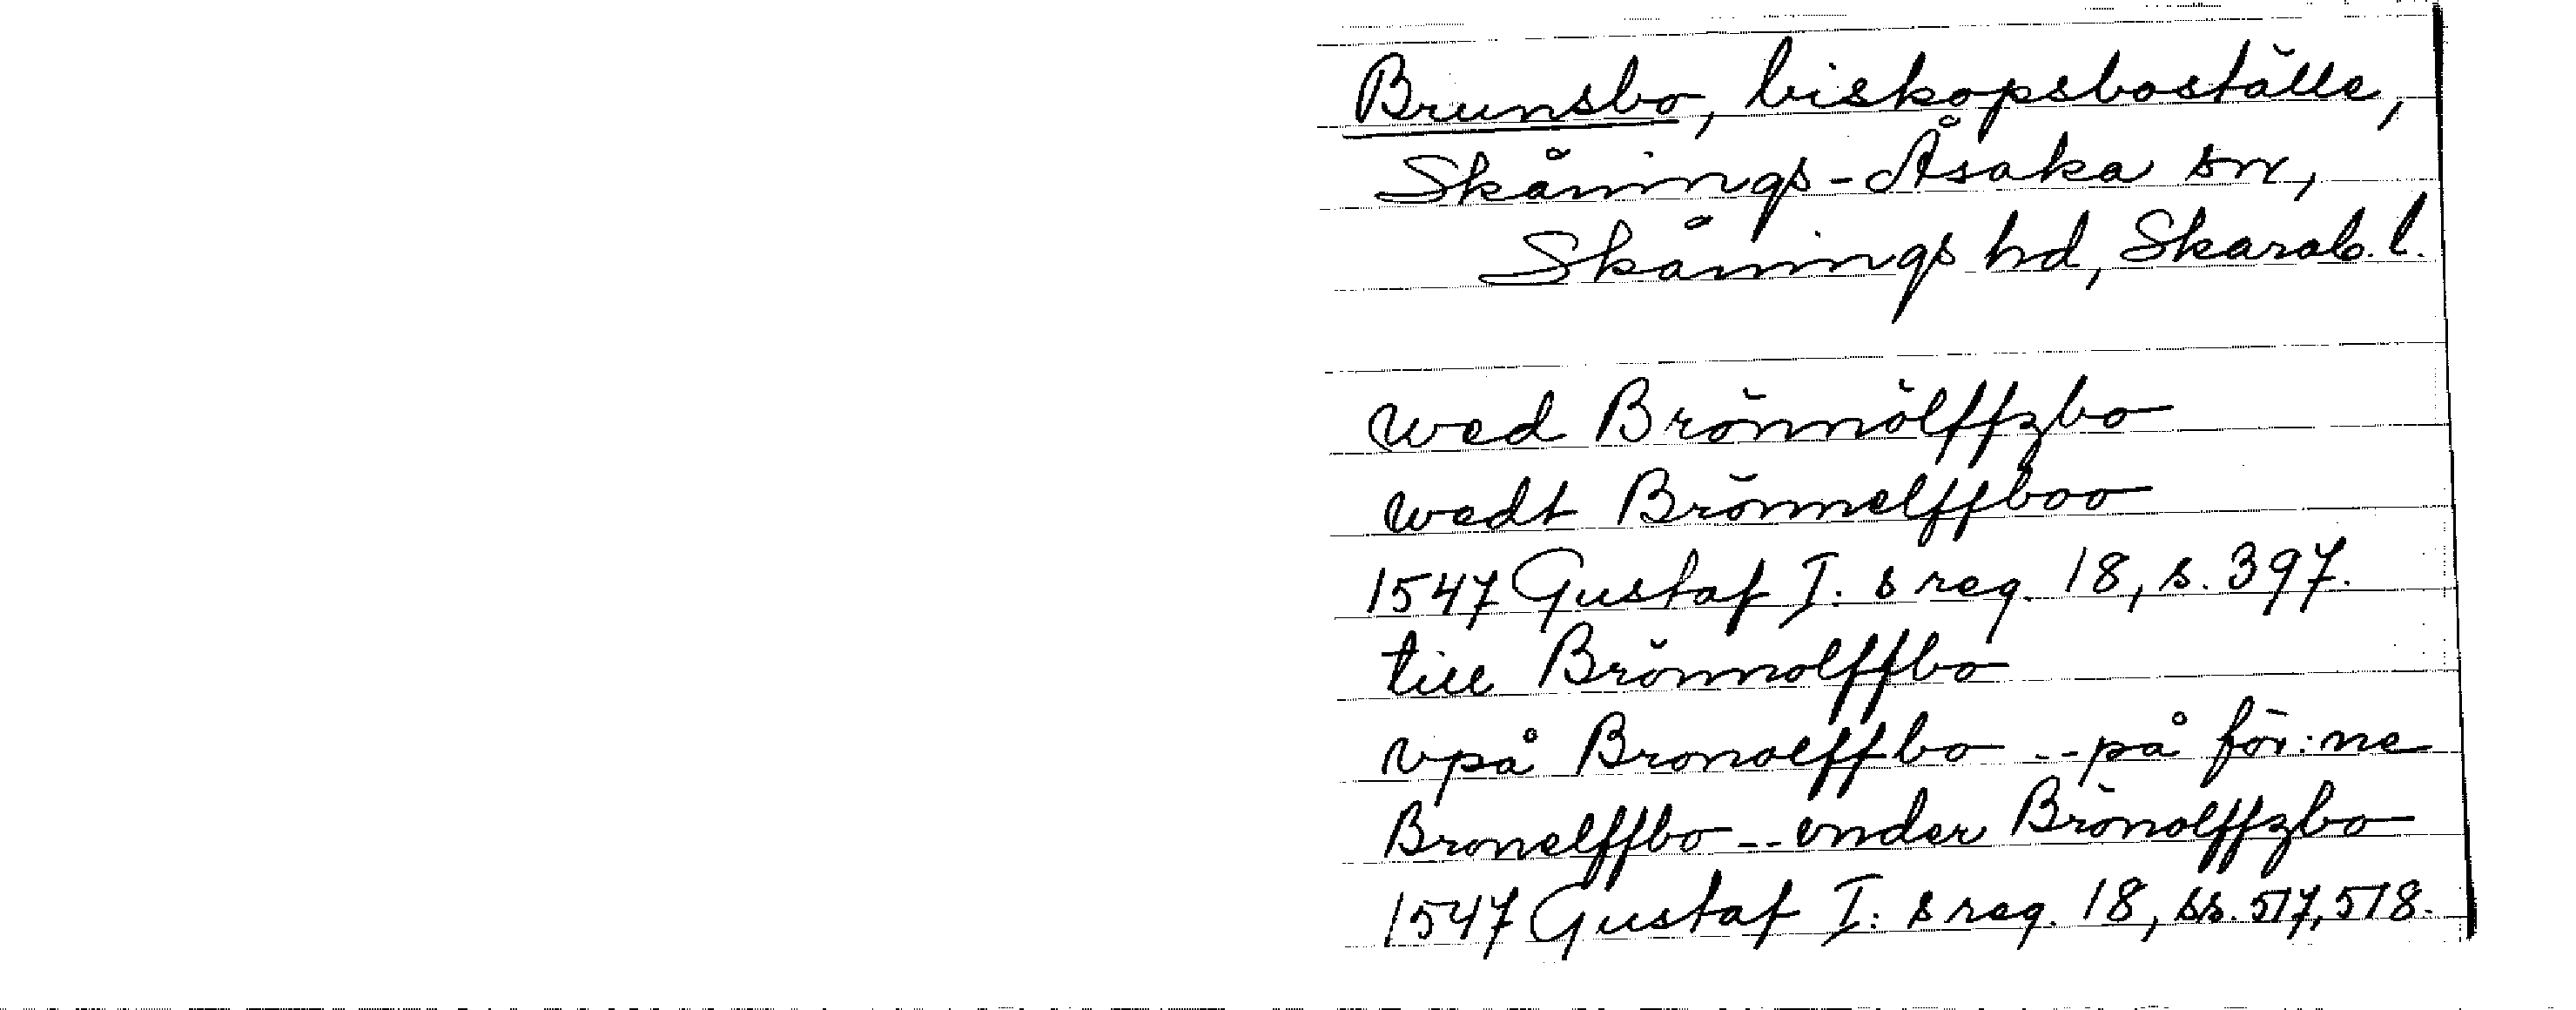 Brunsbo, biskopsboställe,
Skånings-Åsaka sn,
Skånings hd, Skarab. l.
wed Brönnölffzbo
wedt Brönnelffboo
1547 Gustaf I: s reg. 18, s. 397.
till Brönnolffbo
vpå Bronolffbo -- på för:ne
Bronelffbo -- vnder Brönolffzbo
1547 Gustaf I: s reg. 18, ss. 517, 518.